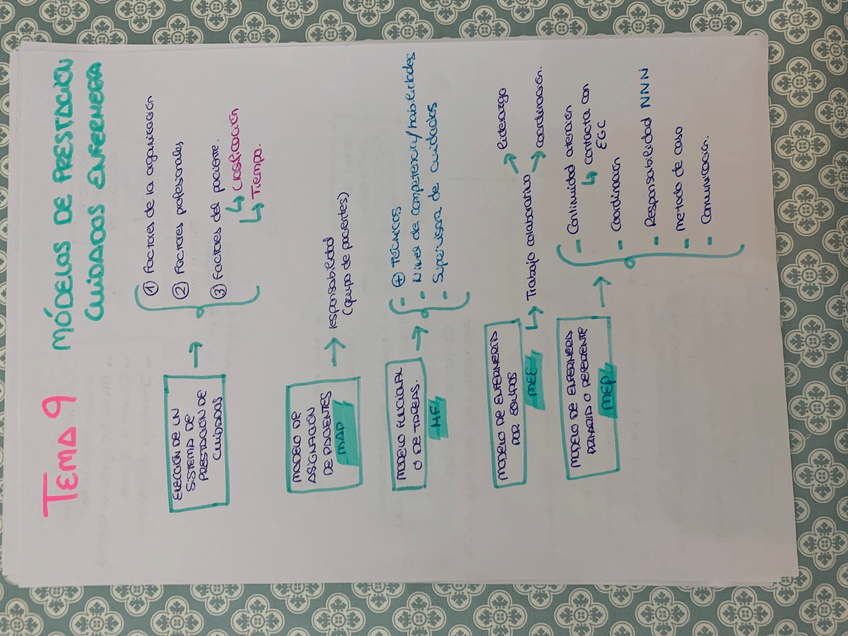 TEMA 9
MÓDELOS DE PRESTACIÓN
CUIDADOS ENFERMERA
ELECCIÓN DE UN
SISTEMA DE
PRESTACIÓN DE
CUIDADOS
① Factores de la organización
② Factores profesionales
③ Factores del paciente.
↳ Clasificación
↳ Tiempo.
MODELO DE
ASIGNACIÓN
DE PACIENTES
MAP
responsabilidad
(equipo de pacientes)
MODELO FUNCIONAL
O DE TAREAS.
MF
- ⊕ TÉCNICOS
- Nivel de competencia/habilidades
- Supervisora de cuidados
MODELO DE ENFERMERÍA
POR EQUIPOS
MEE
↳ Trabajo colaborativo
→ liderazgo
→ coordinación.
MODELO DE ENFERMERA
PRIMARIA O REFERENTE
MEP
- Continuidad atención
↳ contacta con
EGC
- Coordinación
- Responsabilidad NNN
- método de caso
- Comunicación.